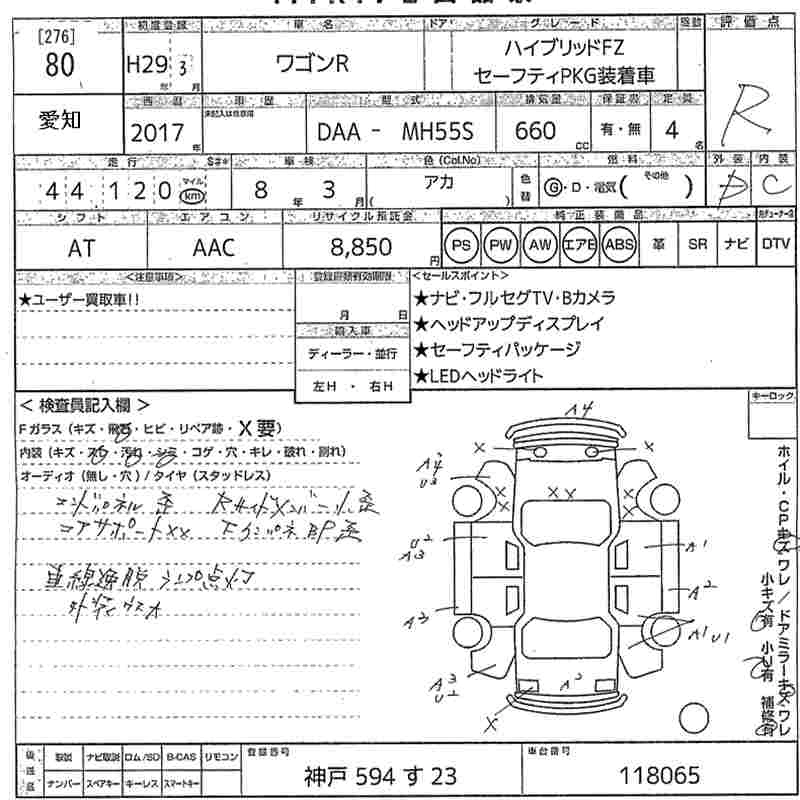 [276]
80
初度登録
車名
ドア
グレード
駆動
評価点
H29年3月
ワゴンR
ハイブリッドFZ
セーフティPKG装着車
R
愛知
西暦
車歴
型式
排気量
保証書
定員
2017年
未記入は自家用
DAA - MH55S
660 CC
有・無
4名
走行
車検
色 (Col.No)
燃料
外装
内装
44120
マイル
km
8年3月
アカ
( )
色替
G・D・電気( その他 )
D
C
シフト
エアコン
リサイクル預託金
純正装備品
AT
AAC
8,850円
PS
PW
AW
エアB
ABS
革
SR
ナビ
DTV
<注意事項>
★ユーザー買取車!!
登録書類有効期限
月 日
輸入車
ディーラー・並行
左H ・ 右H
<セールスポイント>
★ナビ・フルセグTV・Bカメラ
★ヘッドアップディスプレイ
★セーフティパッケージ
★LEDヘッドライト
< 検査員記入欄 >
Fガラス (キズ・飛石・ヒビ・リペア跡・X要)
内装 (キズ・スレ・汚れ・シミ・コゲ・穴・キレ・破れ・割れ)
オーディオ (無し・穴) / タイヤ (スタッドレス)
コアサポートxx
車線逸脱
点灯
キーロック
ホイル・CP キズ ワレ/ドアミラー キズ・ワレ
小キズ有 小U有 補修有
A4
X
X
A3
U2
A1
A2
A3
A1 U1
A3
U2
A3
X
後送品
取説
ナビ取説
ロム/SD
B-CAS
リモコン
ナンバー
スペアキー
キーレス
スマートキー
登録番号
神戸 594 す 23
車台番号
118065